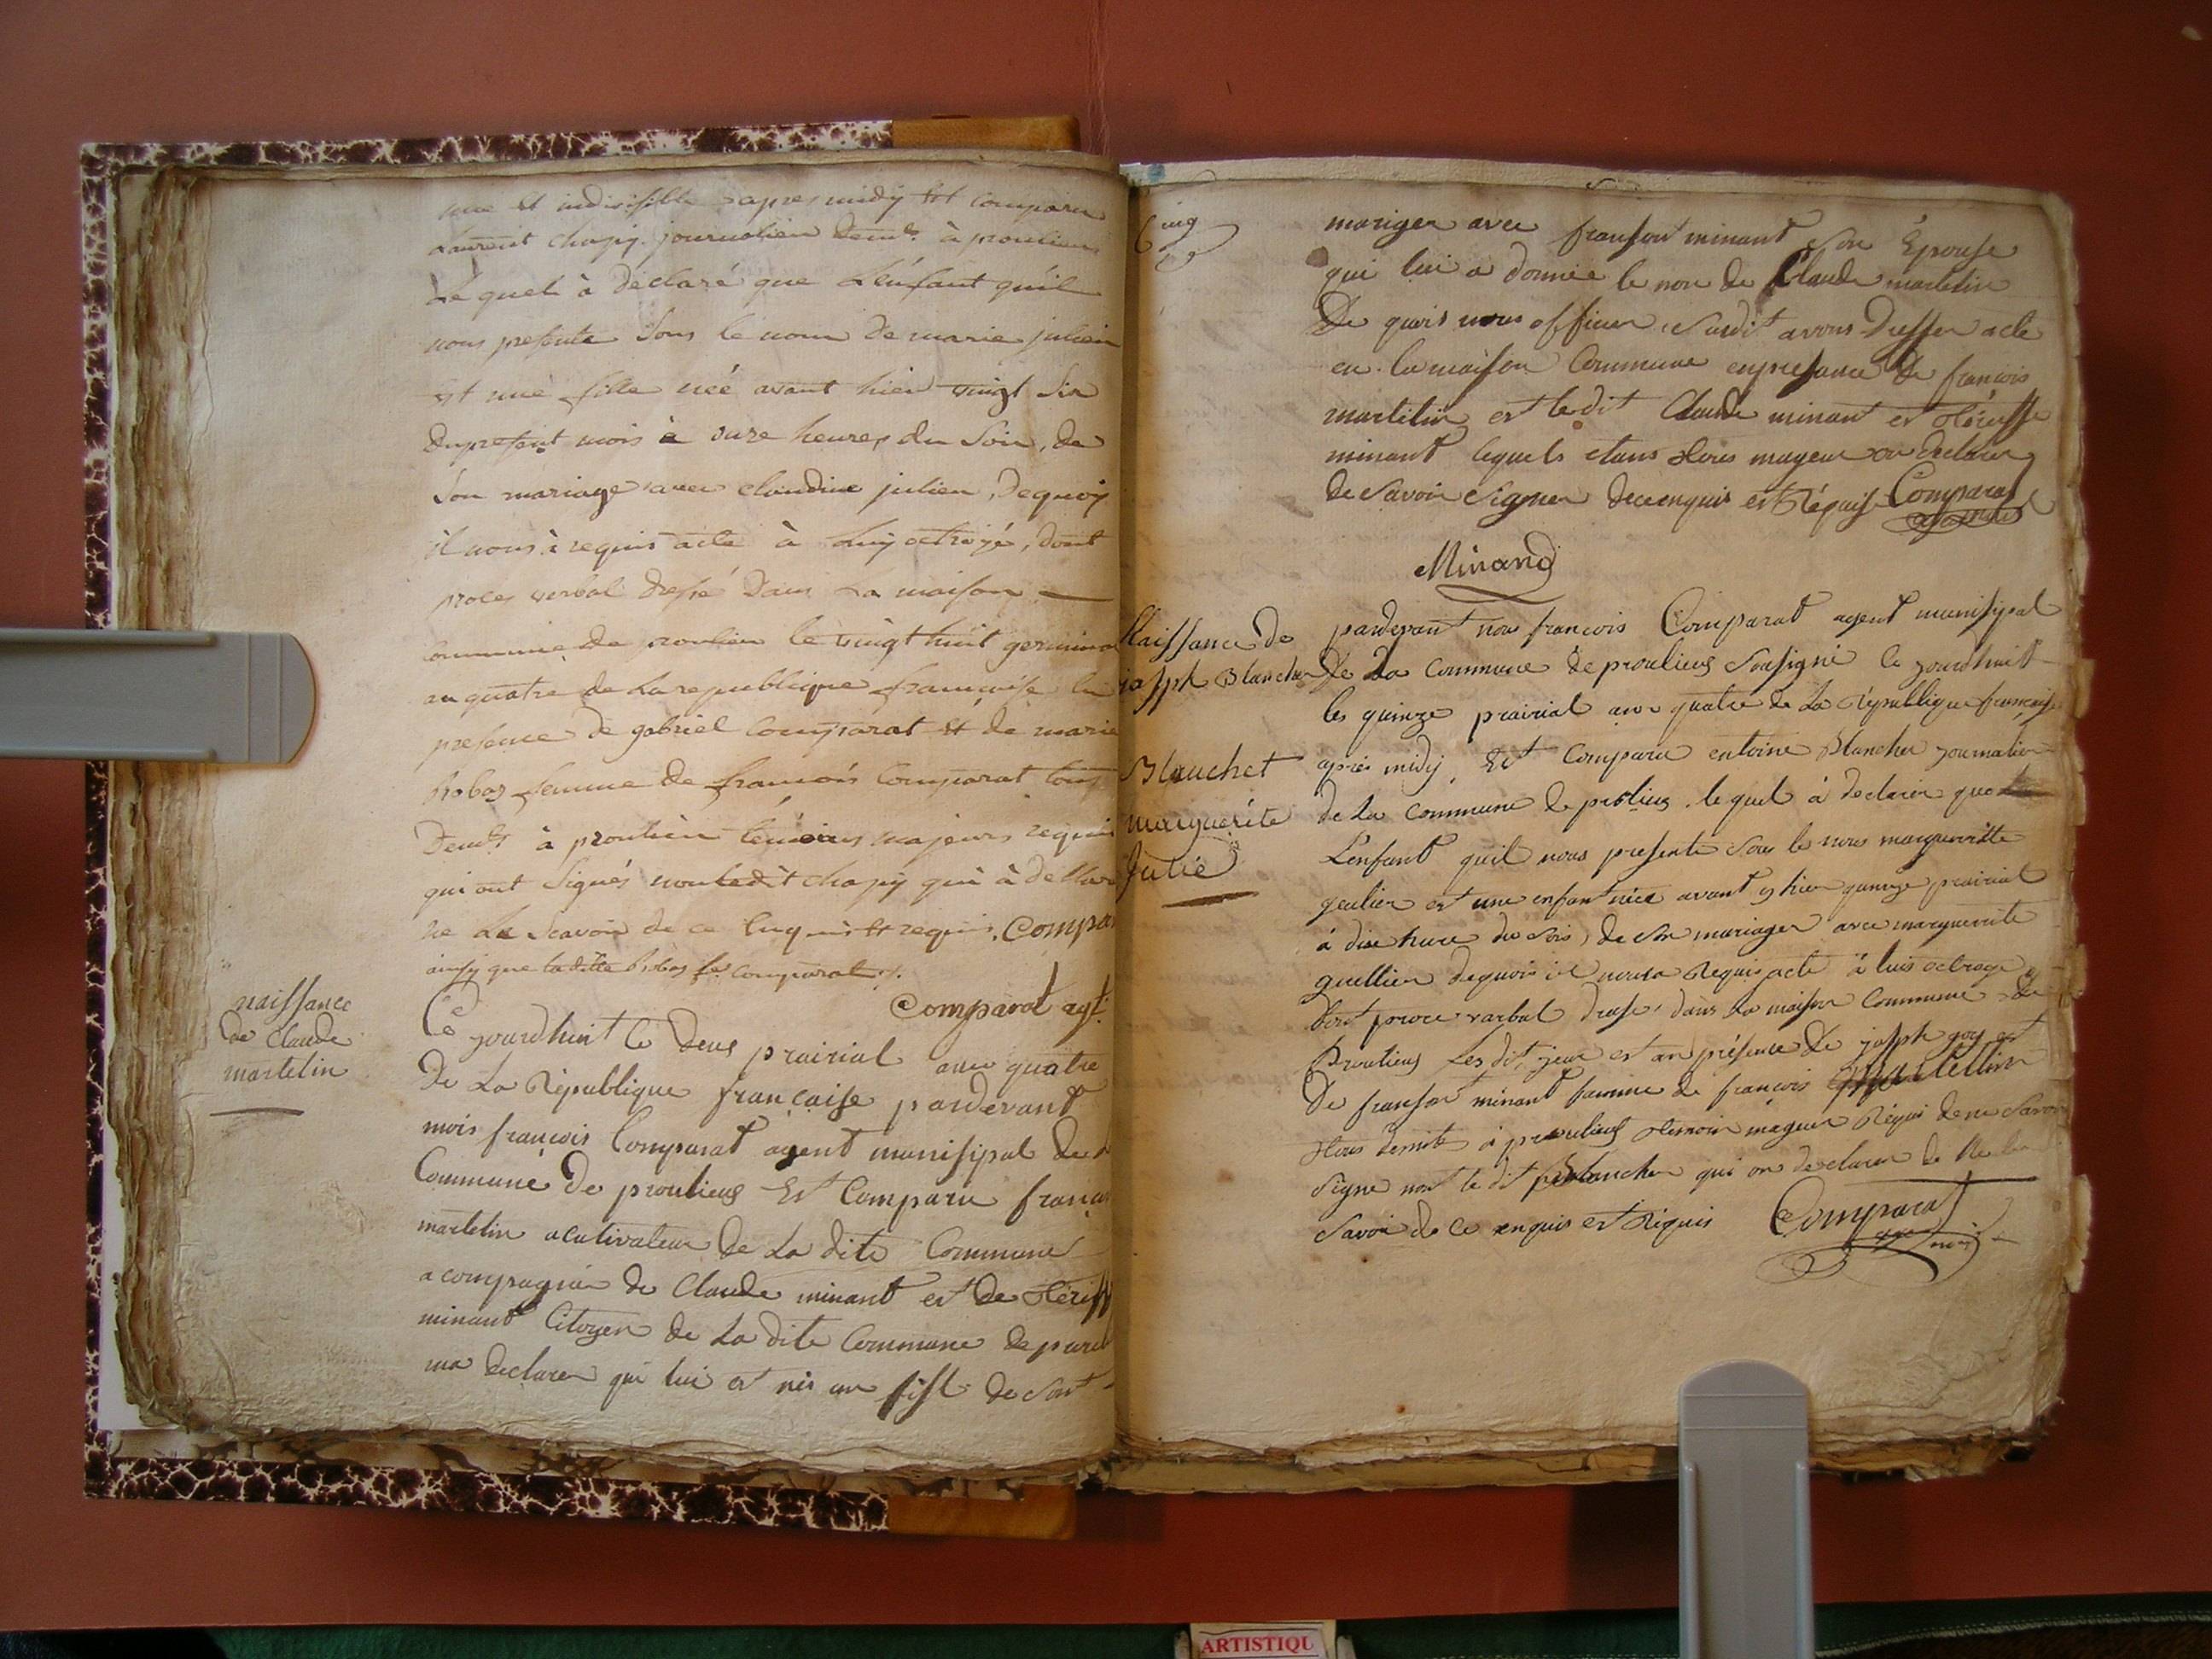 une et indivisible apres midy est comparu
Laurent chapy journalier demt à proulieu
Le quel à déclaré que L'enfant qu'il
nous presente sous le nom de marie julien
est une fille née avant hier vingt six
du present mois à onze heures du soir, de
son mariage avec claudine julien, de quoy
il nous à requis acte à Luy octroyé, dont
proces verbal dressé dans La maison
commune de proulieu le vingt huit germinal
an quatre de La republique française en
presence de gabriel comparat et de marie
probas femme de françois comparat tous
demts à proulieu témoins majeurs requis
qui ont signés non ledit chapy qui à declaré
ne Le scavoir de ce enquis et requis. Compa
ainsy que la ditte probas fe comparat
Comparat agt
naissance
de Claude
martelin
Ce jourdhuit le deus prairial ane quatre
De La République française pardevant
mois francois Comparat agent munisipal de
Commune De proulieus Est Comparu franç
martelin acutivateur de La dite Commune
a compagnier de Claude minant et de terif
minant Citoyen de La dite Commune de
ma declarer qui lui et nis un fisl de son
Cinq
mariger avec franson minant son Épouse
qui lui a donnée le non de Claude martelin
De quois nous officier susdit avons dresser acte
en la maison Commune en presance de francois
martelin et le dit Claude minant et téresse
minant lequels etans tous mageur on declarer
de savoir signer dece enquis et Réquis Comparat
Minand
Naissance de
josph Blancher
Blauchet
marguerite
Julie
pardevant nous francois Comparat agent munisipal
De La Commune de proulieus sousigné Ce jourdhuit
les quinze prairial ane quatre de La République française
après midy, Est Comparu entoine Blancher journalier
de La Commune de prolieus le quel à declarer que
L'enfant quil nous presente sous le nons marguerritte
geulier et une enfant nice avant hier quinze prairial
à dise heure du sois, de son mariager avec marguerite
guellier dequois il nousa Réquis acte à luis octroye
dont proce varbal drasé dans La maison Commune de
Proulieus Les dit jour et an présence de josph goy et
De franson minant famme de francois Martellin
tous demit à proulieus temoin mageur Réquis de ne savoir
signe non le dit Blancher qui on declarer de Ne le
savoir de ce enquis et Réquis Comparat